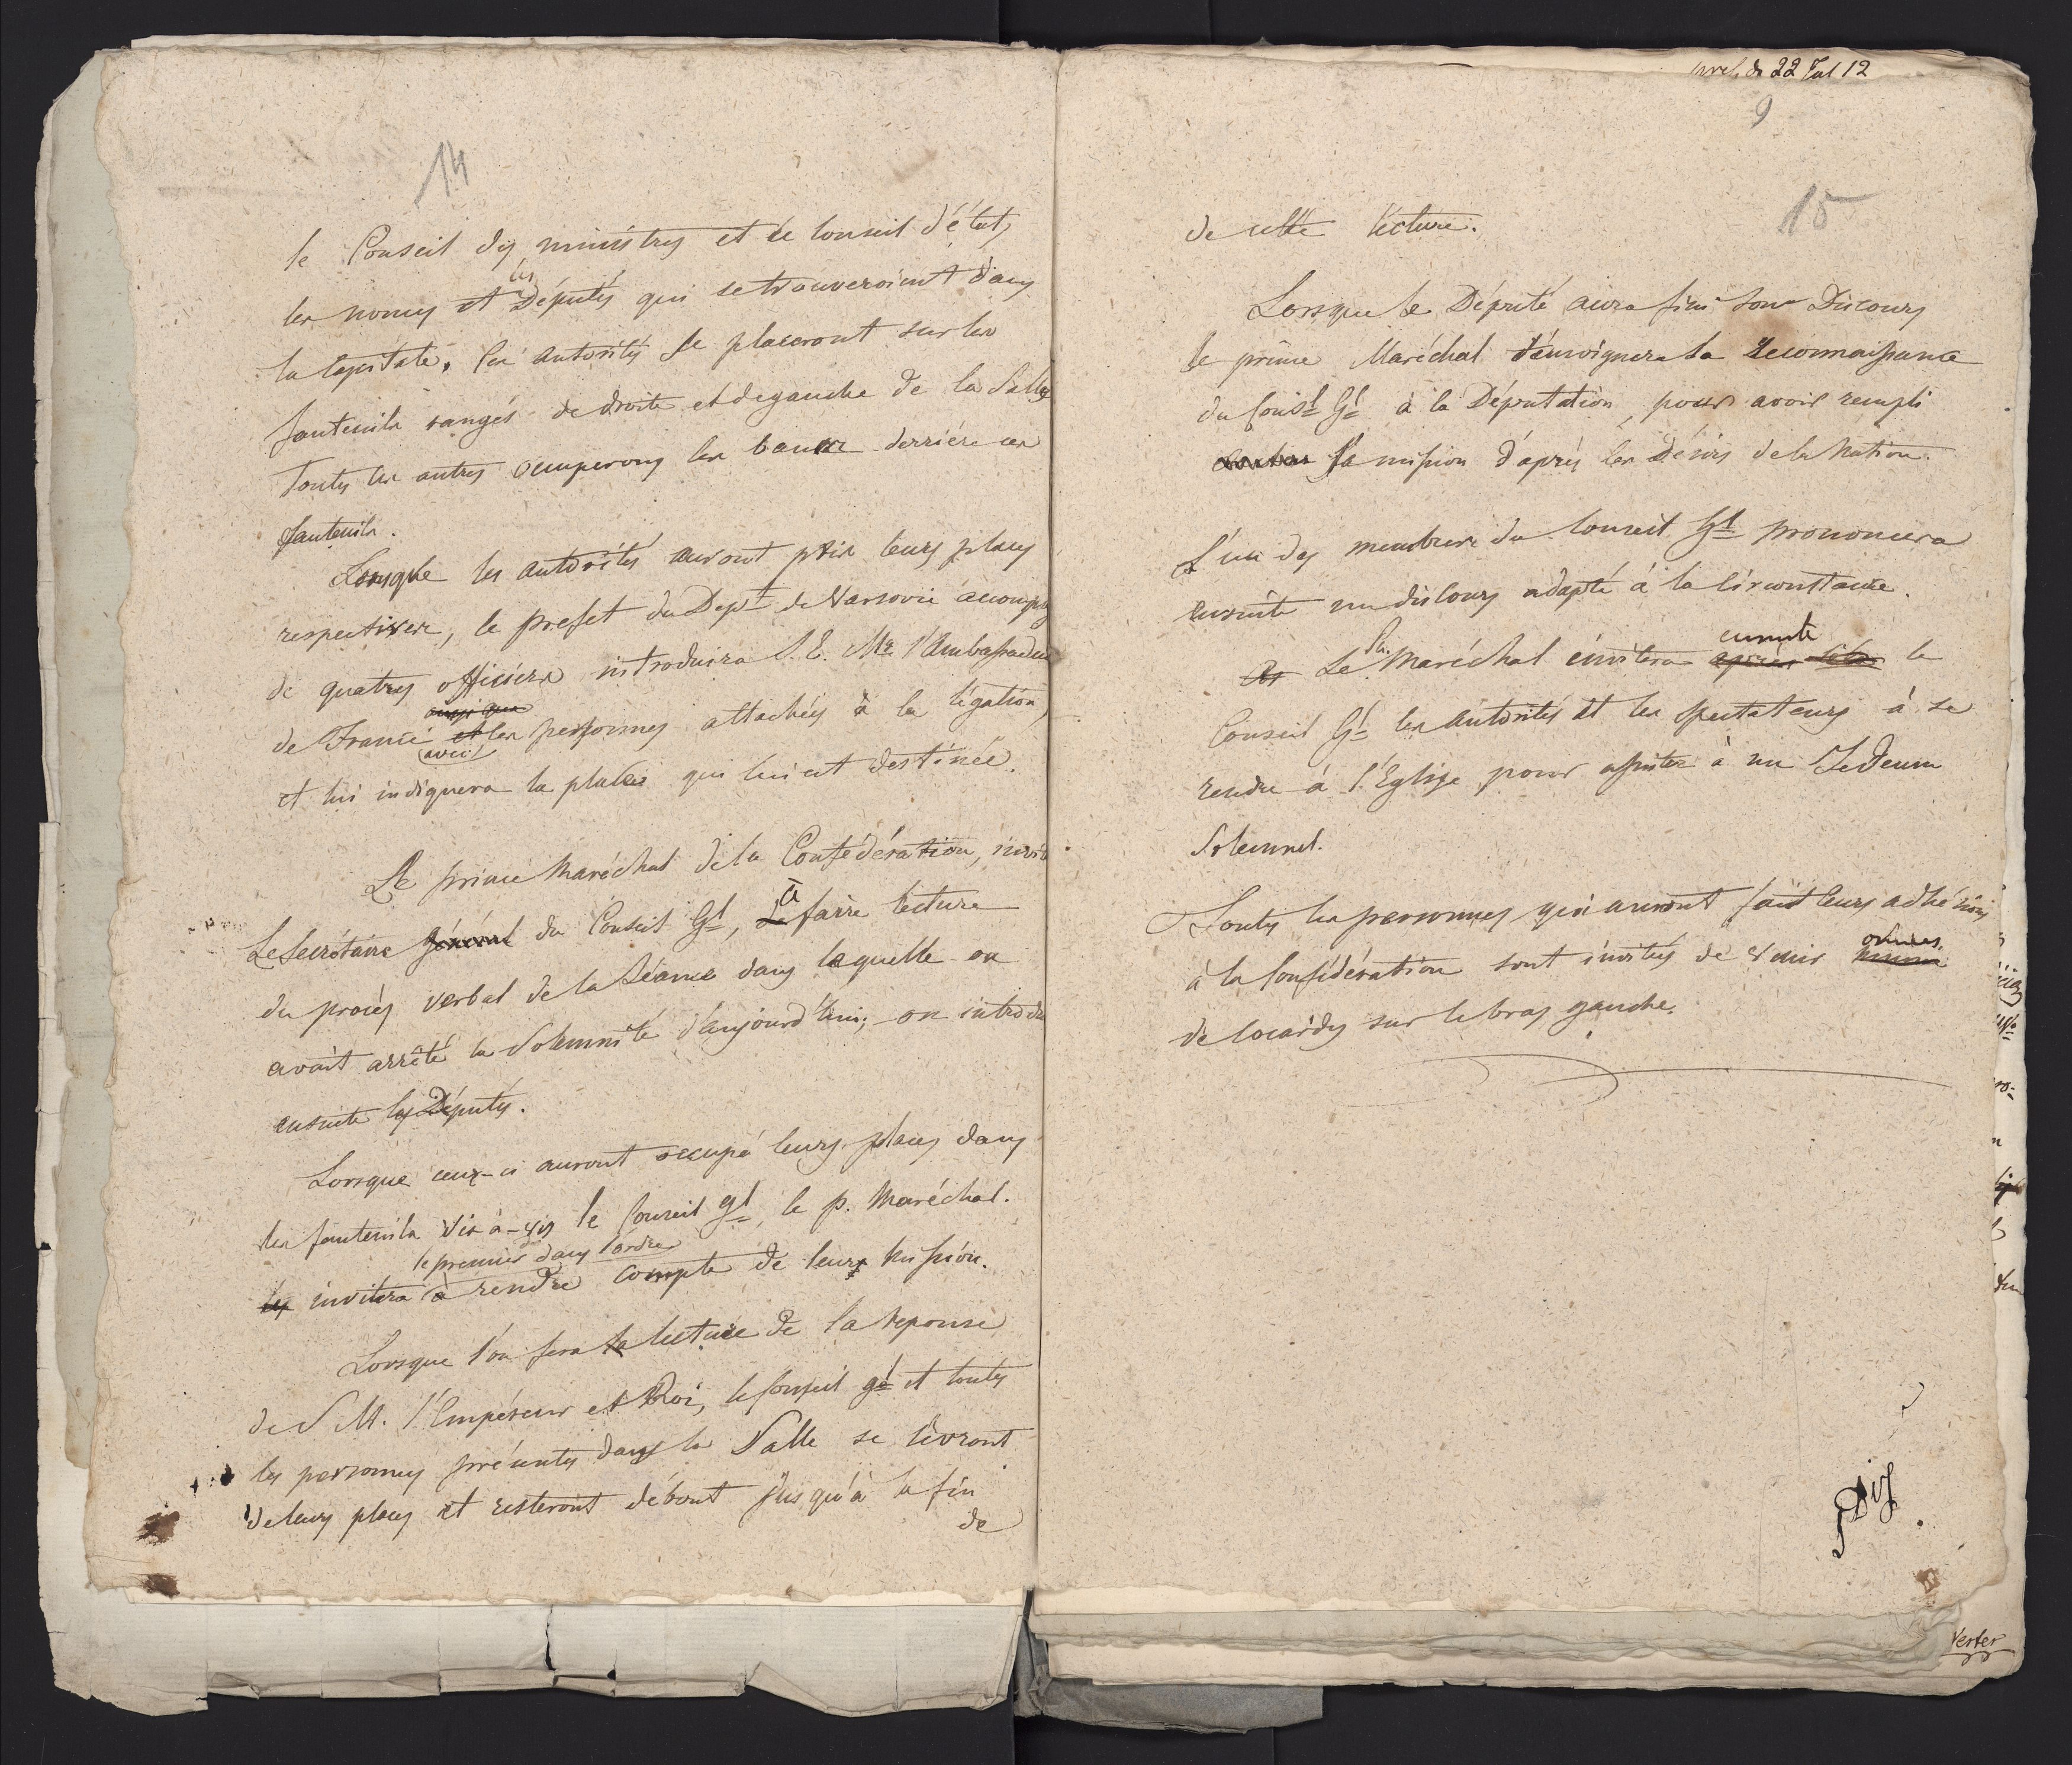 14
le Conseil des ministres et le conseil d'état,
les nonces et les Députés qui se trouveroient dans
la Capitale. Les Autorités se placeront sur les
fauteuils rangés de droite et de gauche de la Salle
Toutes les autres occuperons les bancs derrière ces
fauteuils.
Lorsque les autorités auront pris leurs places
respectives, le prefet du Dept de Varsovie accompag
de quatres officiers introduira S. E. Mr l'Ambassadeu
ainsi que
de France et les personnes attachées à la légation,
(avec)
et lui indiquera la place qui lui est destinée.
Le prince Maréchal de la Confédération, invit
Le Secrétaire Général du Conseil Gl, à faire lecture
du procès verbal de la Séance dans laquelle on
avait arrêté la Solemnité d'aujourd'hui; on introdu
ensuite les Députés.
Lorsque ceux-ci auront occupé leurs places dans
les fauteuils vis-à-vis le Conseil gl, le p. Maréchal.
le premier dans l'ordre
les invitera à rendre compte de leurs mission.
Lorsque l'on fera la lecture de la reponse
de S M. l'Empéreur et Roi, le Conseil gl et toutes
les personnes présentes dans la Salle se lèvront
de leurs places et resteront débout jusqu'à la fin
de
22 Jul 12
9
15
de cette lécture.
Lorsque le Député aura fini son Discours
le prince Maréchal témoignera la reconnaissance
du Consl Gl à la Députation, pour avoir rempli
sa mission d'après les Désirs de la Nation.
L'un des membres du Conseil Gl prononcera
ensuite un discours adapté à la circonstance.
ensuite
Le Pce Maréchal invitera après cela le
Conseil Gl les Autorités et les spectateurs à se
rendre à l'Eglise pour assister à un TeDeum
Solemnel.
Toutes les personnes qui auront fait leurs adhésions
à la Confédération sont invités de venir ornées
de cocardes sur le bras gauche.
Verter